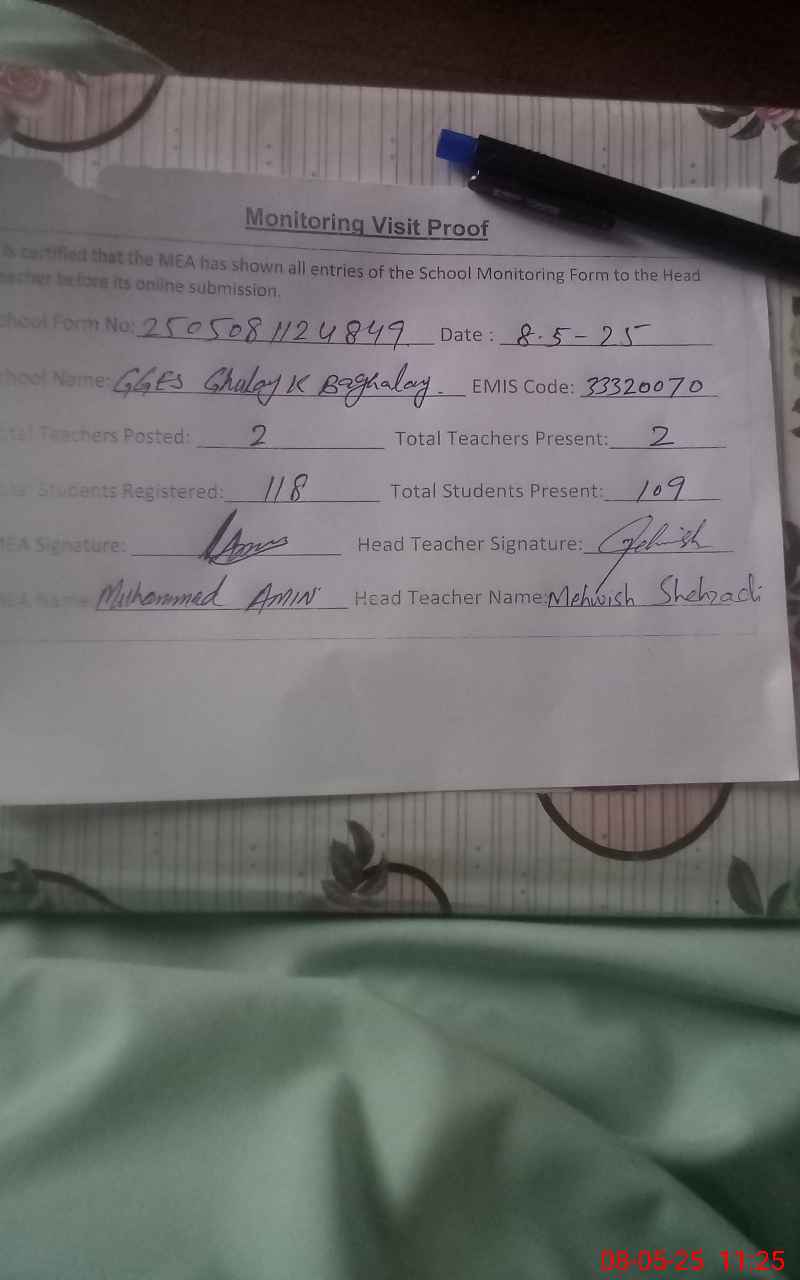 Monitoring Visit Proof
is certified that the MEA has shown all entries of the School Monitoring Form to the Head
eacher before its online submission.
chool Form No: 2505081124849 Date : 8-5-25
chool Name: GGES Ghaloy K Baghalay. EMIS Code: 33320070
tal Teachers Posted: 2 Total Teachers Present: 2
Students Registered: 118 Total Students Present: 109
MEA Signature: Amin Head Teacher Signature: Mehwish
MEA Name: Muhammad AMIN Head Teacher Name: Mehwish Shehzadi
08-05-25 11:25